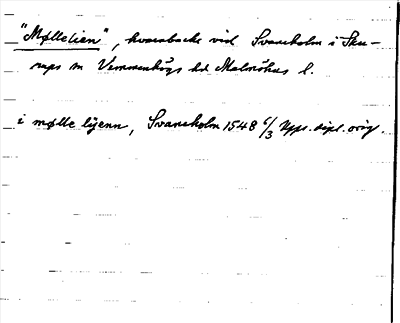 "Møllelien", kvarnbacke vid Svaneholm i Sku-
rups sn Vemmenhögs hd Malmöhus l.
i mølle lijenn, Svaneholm 1548 6/3 Upps. dipl. orig.